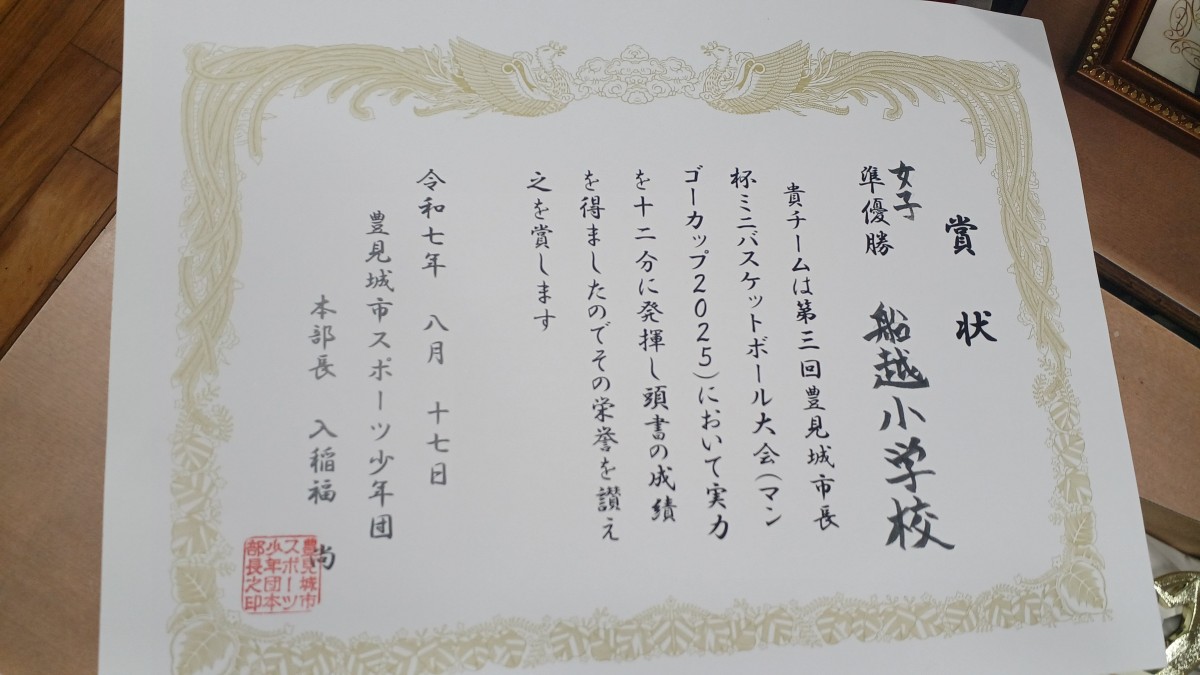 賞状
女子
準優勝
船越小学校
貴チームは第三回豊見城市長
杯ミニバスケットボール大会(マン
ゴーカップ2025)において実力
を十二分に発揮し頭書の成績
を得ましたのでその栄誉を讃え
之を賞します
令和七年 八月 十七日
豊見城市スポーツ少年団
本部長 入稲福 尚
豊見城市
スポーツ
少年団本
部長之印